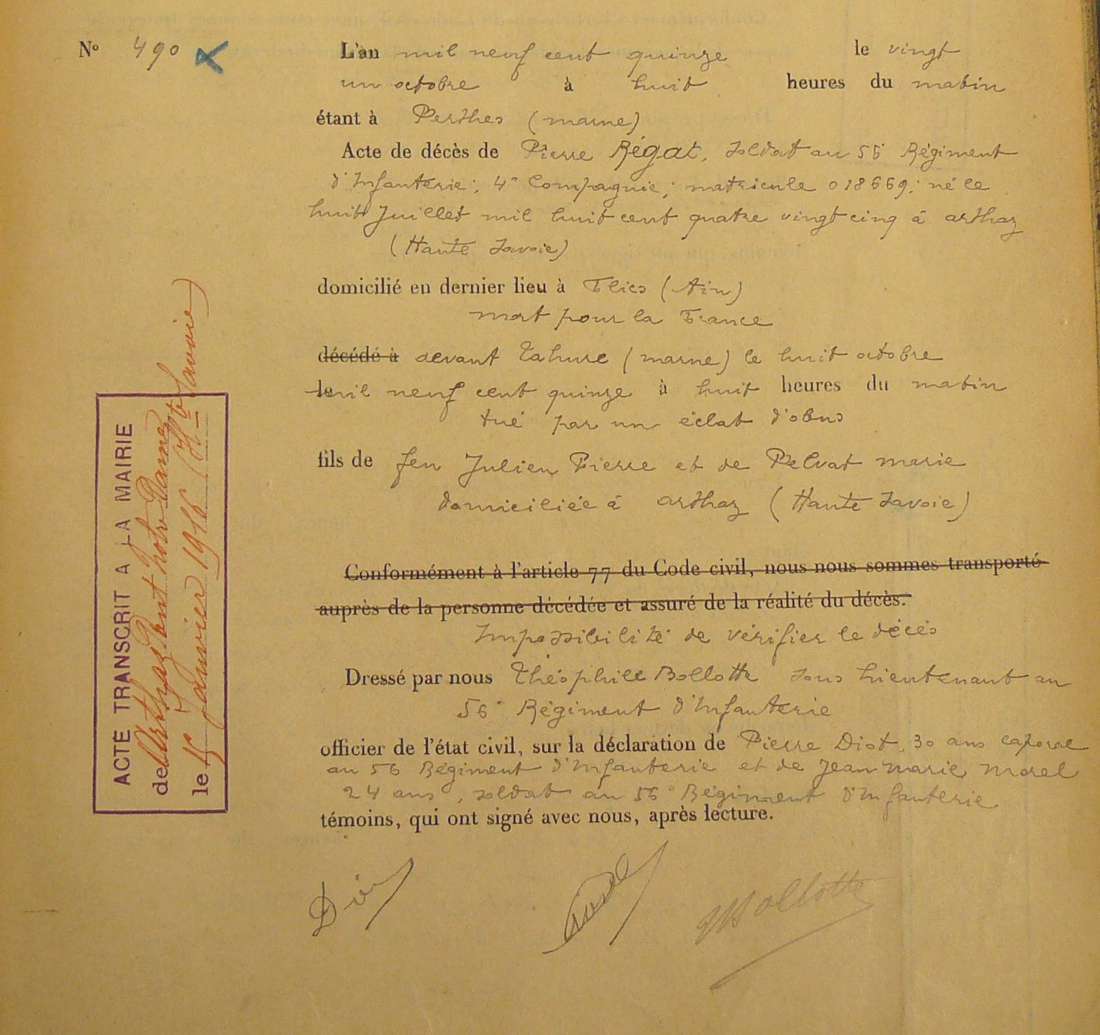 N° 490
L'an mil neuf cent quinze le vingt
un octobre à huit heures du matin
étant à Perthes (marne)
Acte de décès de Pierre Régat, soldat au 56 Régiment
d'Infanterie; 4e Compagnie; matricule 018669; né le
huit Juillet mil huit cent quatre vingt cinq à arthaz
(Haute Savoie)
domicilié en dernier lieu à (Ain)
mort pour la France
décédé à devant Tahure (marne) le huit octobre
le mil neuf cent quinze à huit heures du matin
tué par un éclat d'obus
fils de feu Julien Pierre et de Pelvat marie
domiciliée à arthaz (Haute Savoie)
Conformément à l'article 77 du Code civil, nous nous sommes transporté
auprès de la personne décédée et assuré de la réalité du décès.
Impossibilité de vérifier le décès
Dressé par nous Théophile Bollotte sous lieutenant au
56e Régiment d'Infanterie
officier de l'état civil, sur la déclaration de Pierre Diot, 30 ans caporal
au 56 Régiment d'Infanterie et de Jean Marie Morel
24 ans, soldat au 56e Régiment d'Infanterie
témoins, qui ont signé avec nous, après lecture.
Diot
Bollotte
ACTE TRANSCRIT A LA MAIRIE
de Arthaz Pont notre Dame
le Janvier 1916 (Hte Savoie)